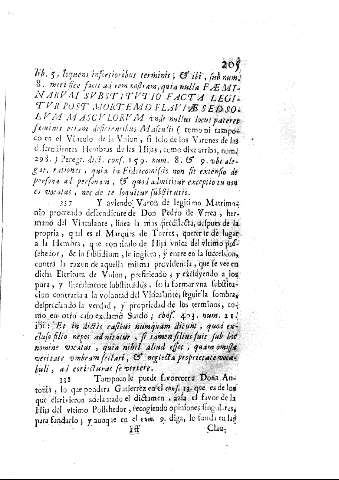 205
lib. 5, loquens in fortioribus terminis, & ibi, sub num.
8. mirifice facit ad rem nostram, quia nulla FÆMI-
NARVM SVBSTITVTIO FACTA LEGI-
TVR POST MORTEM FLAVIÆ SED SO-
LVM MASCVLORVM unde nullus locus pateret
fæminis etiam deficientibus Masculis ( como ni tampo-
co en el Vinculo de la Vnion, si solo de los Varones de las
diferentes Hembras de las Hijas, como dixe arriba, num.
298. ) Peregr. dict. cons. 159. num. 8. & 9. ube ale-
gat, rationes, quia in Fideicomissis non fit extensio de
persona ad personam, & quod admititur exceptio tu non
es vocatus, nec de te loquitur substitutio.
337 Y aviendo Varon de legitimo Matrimonio
procreado descendiente de Don Pedro de Vrrea, her-
mano del Vinculante, linea la mas predilecta, despues de la
propria, qual es el Marquès de Torres, querer le dè lugar
a la Hembra, que con titulo de Hija vnica del vltimo pos-
sehedor, se le subsidium, le ingiera, y entre en la sucession,
contra la razon de aquella misma providencia, que se vee en
dicha Escritura de Vnion, prefiriendo, y excluyendo a los
para, y literalmente substituìdos, se la formaria substitucion
contraria a la voluntad del Vinculante, seguir la sombra,
despreciando la verdad, y propriedad de los terminos, como
en otro caso exclamò Surdo, cons. 403. num. 21.
ibi: Et in dictis casibus nunquam dicunt, quod ex-
cluso filio nepos admitatur, si tamen filius fuit sub hoc
nomine vocatus, quia nihil aliud esset, quam omissa
veritate vmbram sectari, & neglecta proprietate voca-
buli, ad escripturas se vertere.
338 Tampoco le puede favorecer a Doña An-
tonia, lo que pondera Gutierrez en el cons. 13. que es de los
que escrivieron adelantado el dictamen, azia el favor de la
Hija del vltimo Possehedor, recogiendo opiniones singulares,
para fundarlo; y aunque en el num. 9. diga, se funda en las
Fff Clau-